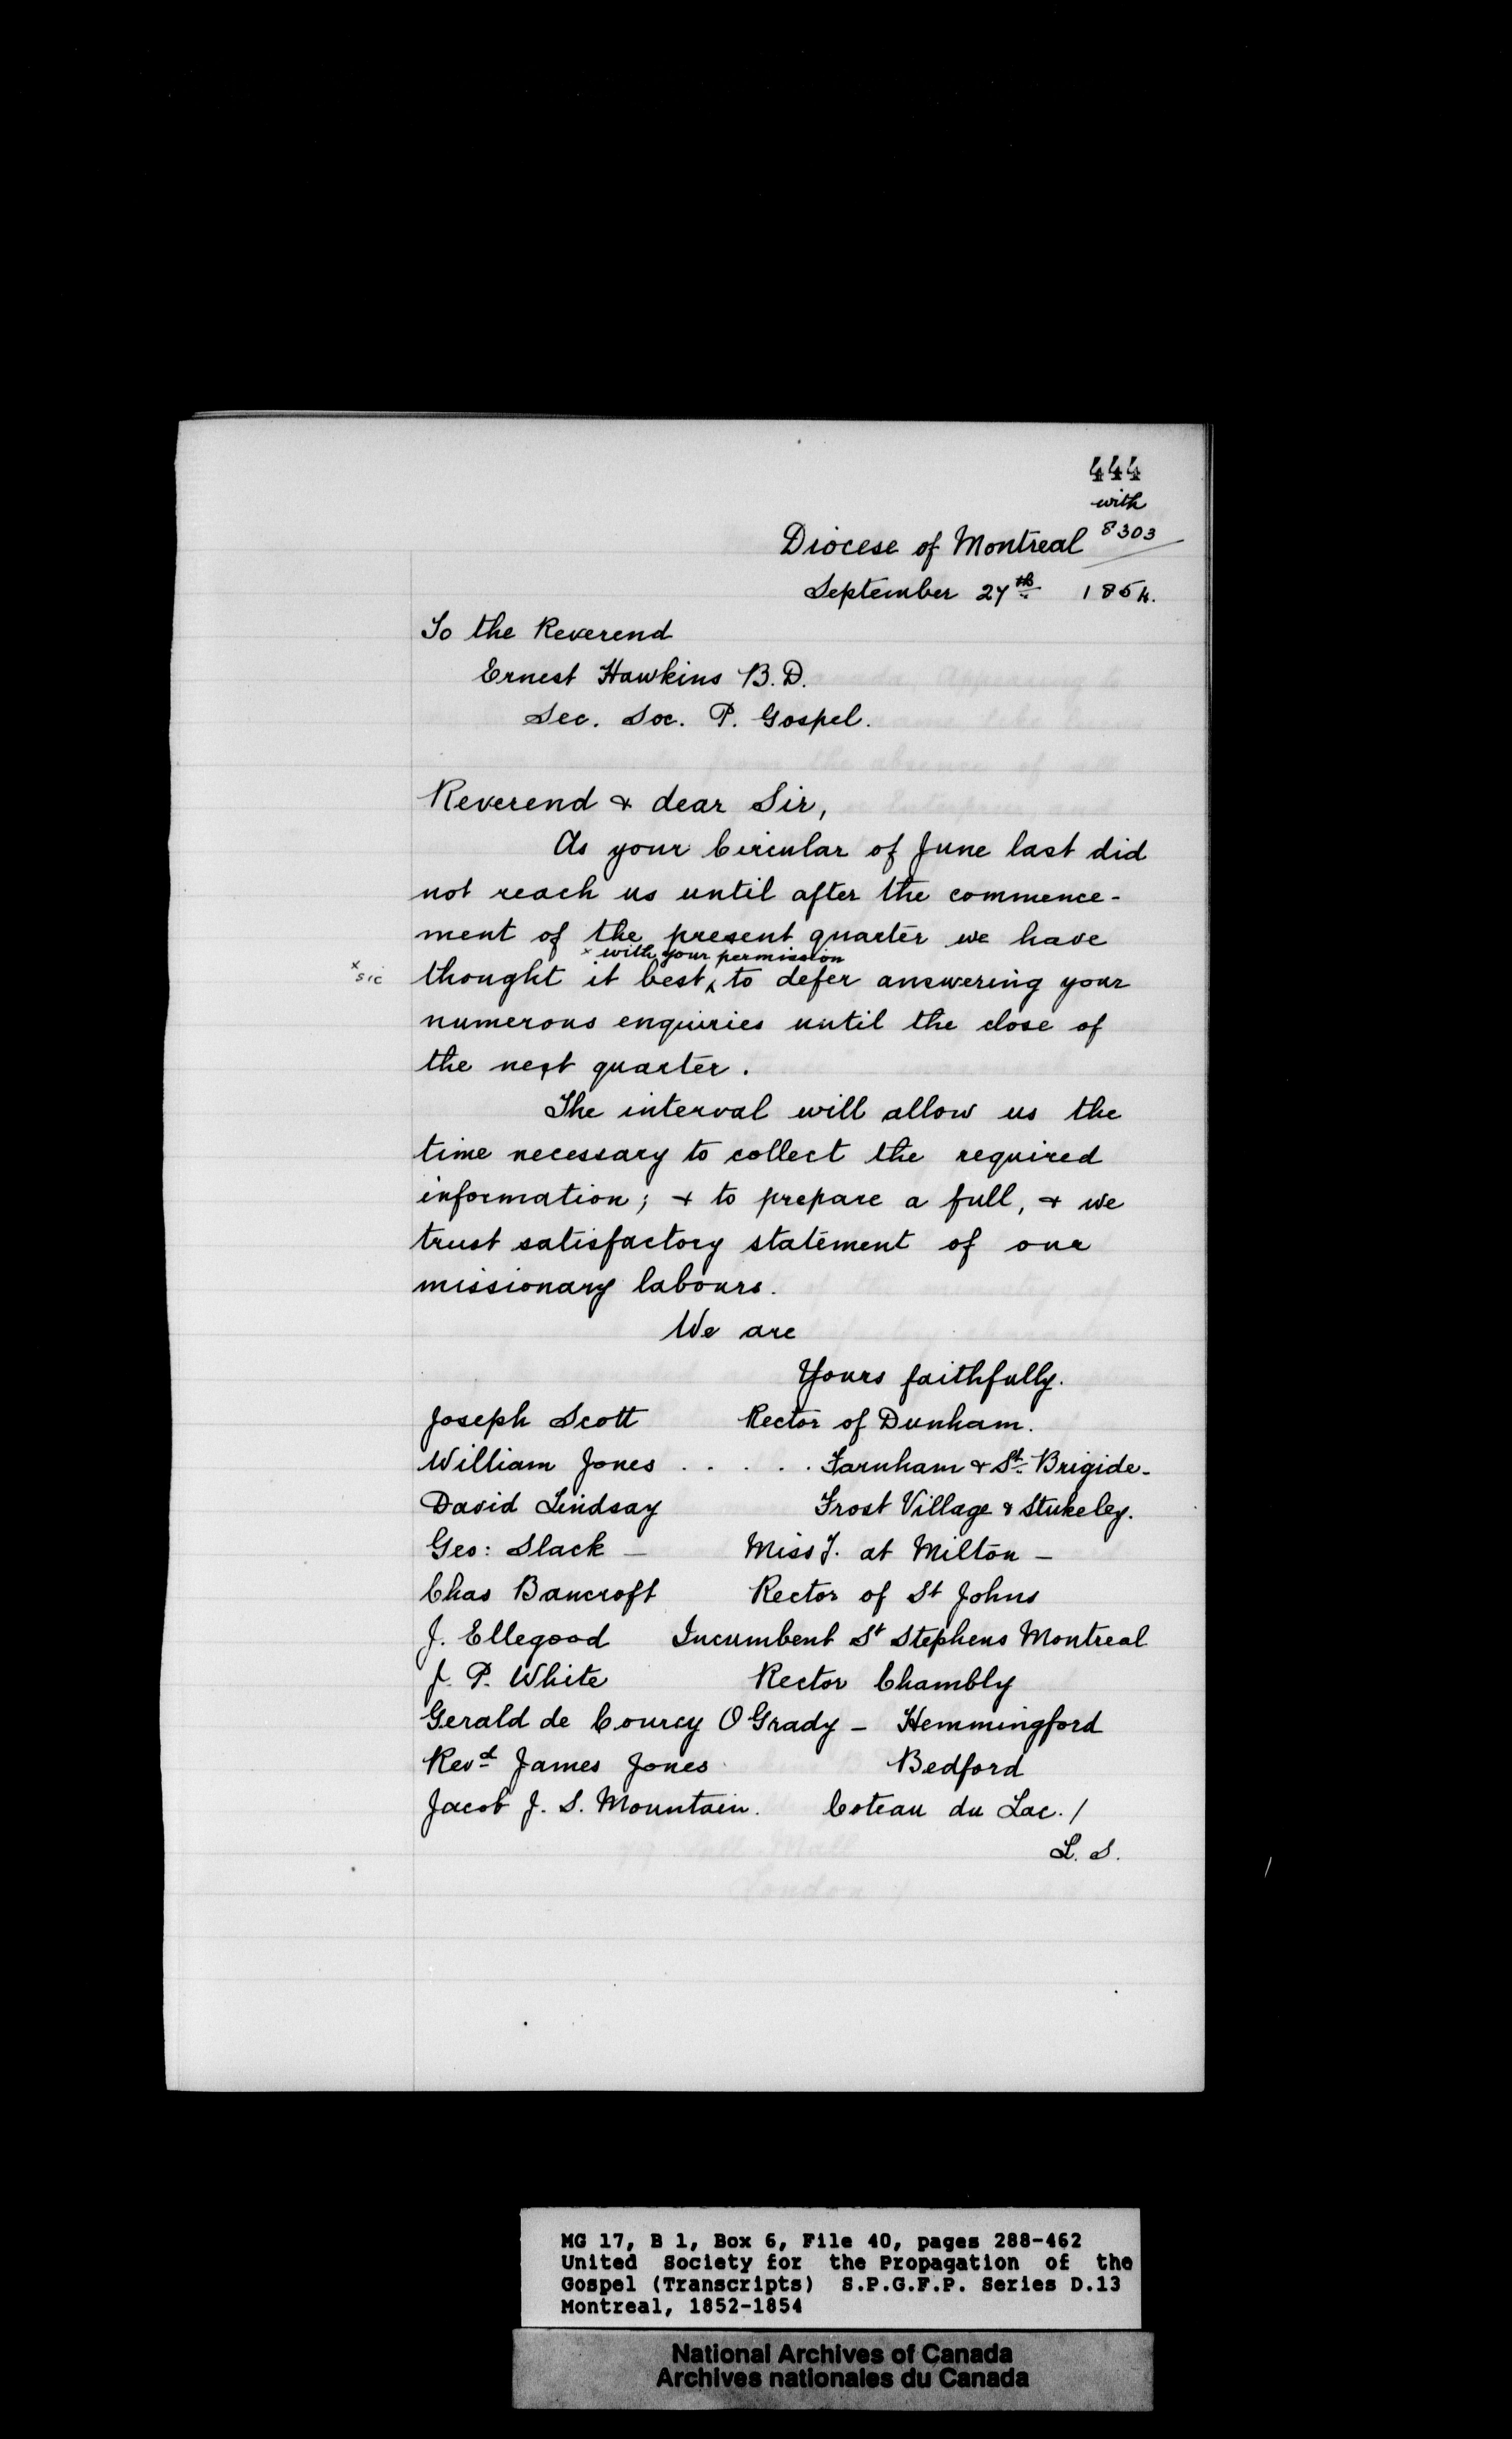 444
with
8303
Diocese of Montreal
September 27th 1854.
To the Reverend
Ernest Hawkins B.D.
Sec. Soc. P. Gospel.
Reverend & dear Sir,
As your Circular of June last did
not reach us until after the commence-
ment of the present quarter we have
x with your permission
x sic
thought it best ^ to defer answering your
numerous enquiries until the close of
the next quarter.
The interval will allow us the
time necessary to collect the required
information; & to prepare a full, & we
trust satisfactory statement of our
missionary labours.
We are
Yours faithfully.
Joseph Scott Rector of Dunham.
William Jones . . . . . Farnham & St. Brigide.
David Lindsay Frost Village & Stukeley.
Geo: Slack — Missy. at Milton —
Chas Bancroft Rector of St Johns
J. Ellegood Incumbent St Stephens Montreal
J. P. White Rector Chambly
Gerald de Courcy O Grady — Hemmingford
Revd James Jones Bedford
Jacob J. S. Mountain. Coteau du Lac. /
L. S.
MG 17, B 1, Box 6, File 40, pages 288-462
United Society for the Propagation of the
Gospel (Transcripts) S.P.G.F.P. Series D.13
Montreal, 1852-1854
National Archives of Canada
Archives nationales du Canada